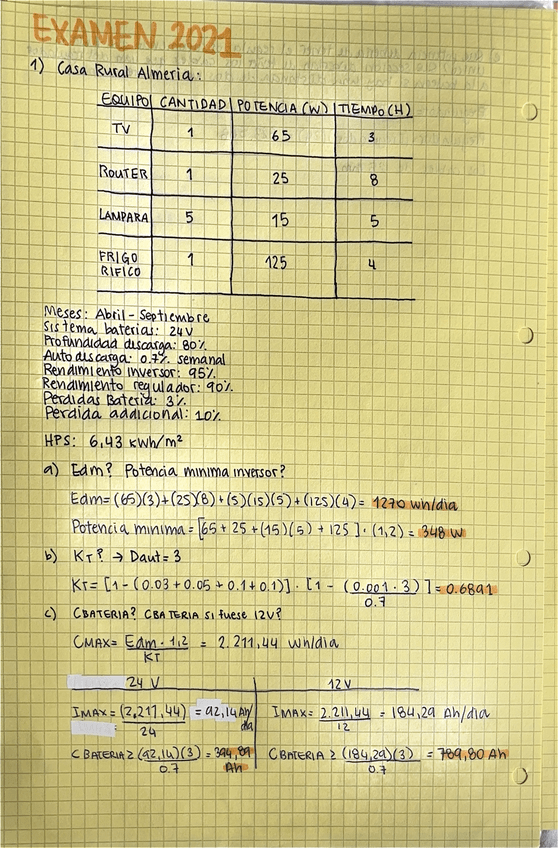 EXAMEN 2021
1) Casa Rural Almeria:
EQUIPO CANTIDAD POTENCIA (W) TIEMPO (H)
TV 1 65 3
ROUTER 1 25 8
LAMPARA 5 15 5
FRIGO
RIFICO 1 125 4
Meses: Abril - Septiembre
Sistema baterias: 24V
Profundidad discarga: 80%
Auto discarga: 0.7% semanal
Rendimiento inversor: 95%
Rendimiento regulador: 90%
Perdidas Bateria: 3%
Perdida addicional: 10%
HPS: 6,43 kWh/m²
a) Edm? Potencia minima inversor?
Edm= (65)(3)+(25)(8)+(5)(15)(5)+(125)(4)= 1270 wh/dia
Potencia minima = [65 + 25 + (15)(5) + 125] · (1,2) = 348 W
b) KT? → Daut = 3
KT= [1 - (0.03 + 0.05 + 0.1 + 0.1)] · [1 - (0.001 · 3)] = 0.6891
0.7
c) CBATERIA? CBATERIA si fuese 12V?
CMAX= Edm · 1,2 = 2.211,44 Wh/dia
KT
24 V 12V
IMAX= (2,211,44) = 92,14 Ah/
24 dia
IMAX= 2.211,44 = 184,29 Ah/dia
12
CBATERIA ≥ (92,14)(3) = 394,89
0.7 Ah
CBATERIA ≥ (184,29)(3) = 789,80 Ah
0.7